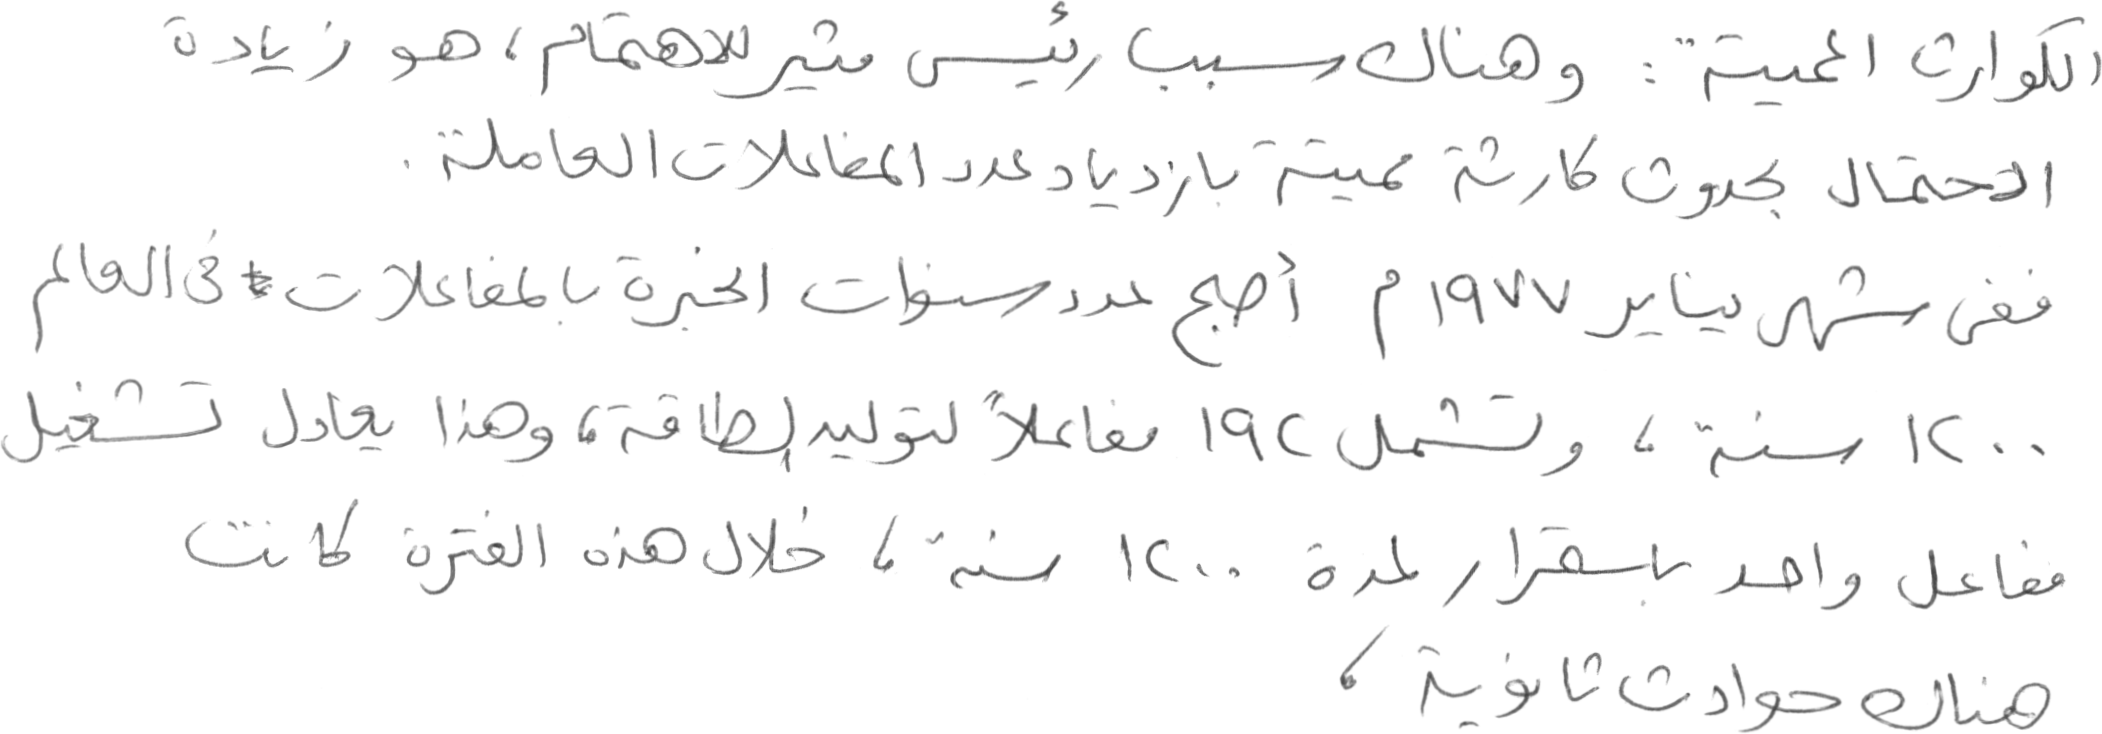 الكوارث المميتة : وهناك سبب رئيس مثير للاهتمام ، هو زيادة
الاحتمال بحدوث كارثة مميتة بازدياد عدد المفاعلات العاملة .
ففى شهر يناير ١٩٧٧ م أصبح عدد سنوات الخبرة بالمفاعلات فى العالم
١٢٠٠ سنة ، وتشمل ١٩٢ مفاعلاً لتوليد الطاقة ، وهذا يعادل تشغيل
مفاعل واحد باستقرار لمدة ١٢٠٠ سنة ، خلال هذه الفترة كانت
هناك حوادث ثانوية ،